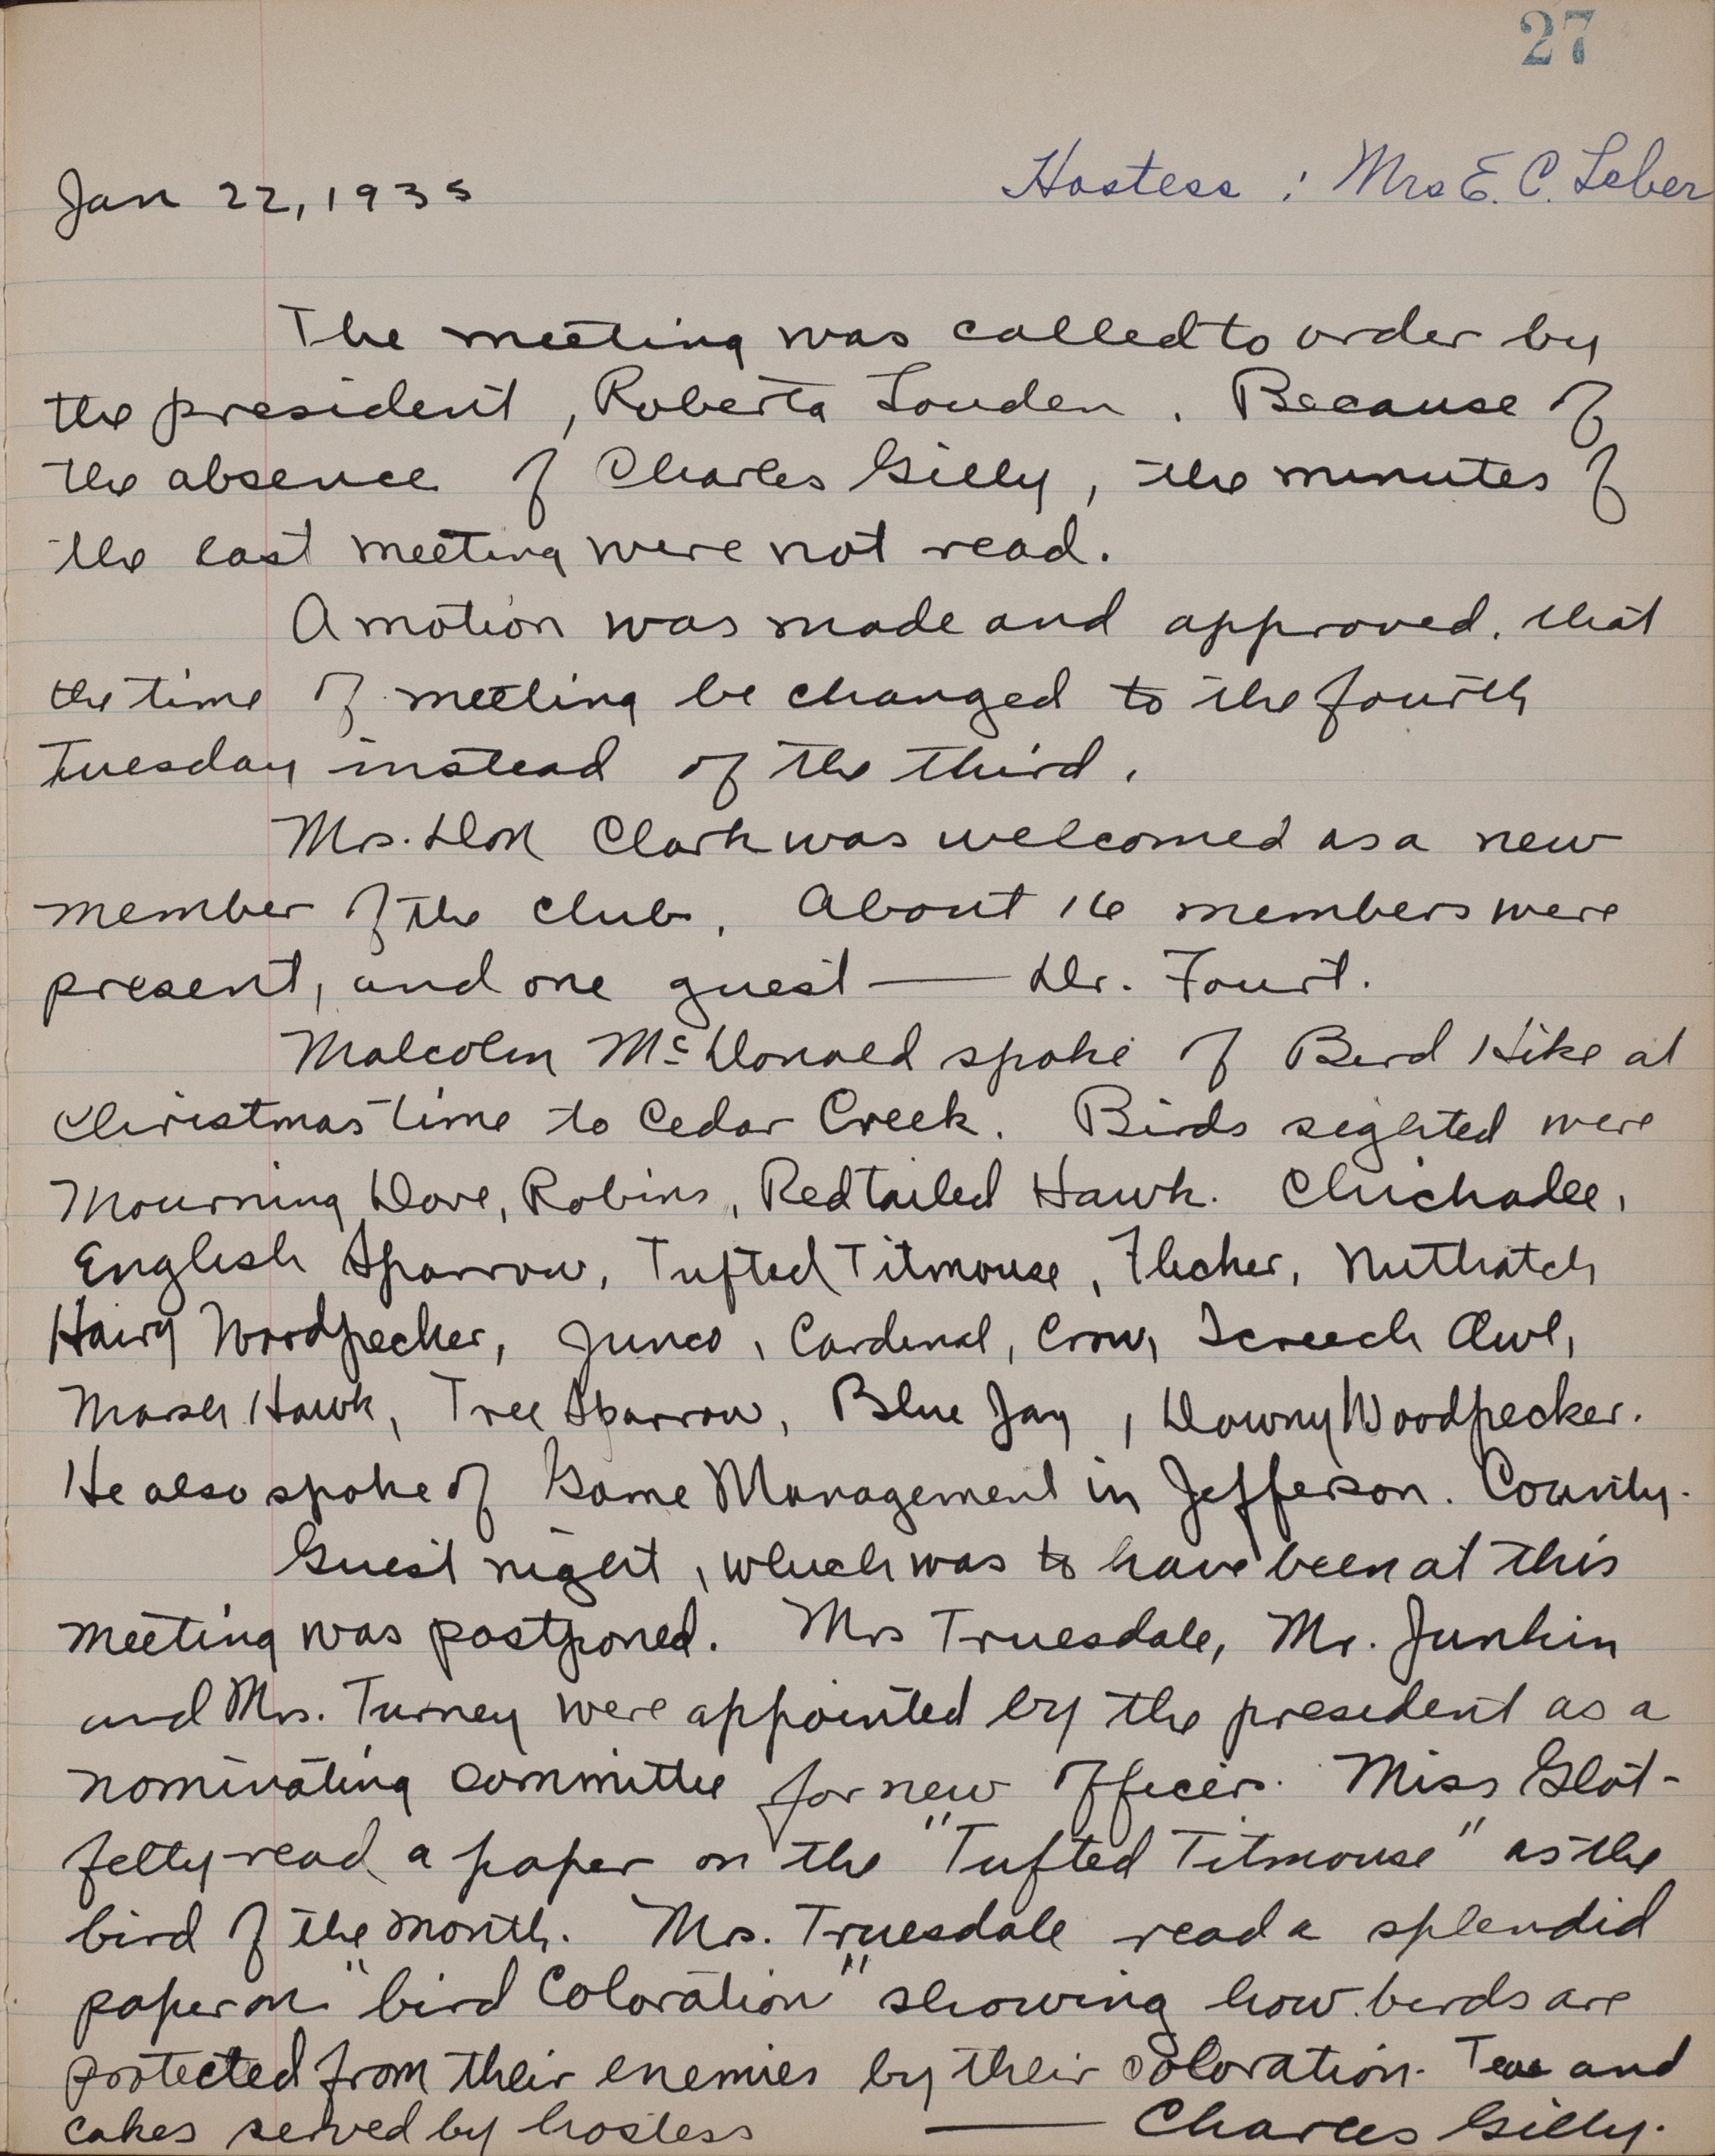 27
Jan 22, 1935
Hostess : Mrs E. C. Leber
The meeting was called to order by
the president, Roberta Louden. Because of
the absence of Charles Gilly, the minutes of
the last meeting were not read.
A motion was made and approved, that
the time of meeting be changed to the fourth
Tuesday instead of the third.
Mrs. Don Clark was welcomed as a new
member of the club. About 16 members were
present, and one guest — Dr. Fourt.
Malcolm McDonald spoke of Bird Hike at
Christmas time to Cedar Creek. Birds sighted were
Mourning Dove, Robins, Redtailed Hawk. Chickadee,
English Sparrow, Tufted Titmouse, Flicker, Nuthatch
Hairy Woodpecker, Junco, Cardinal, Crow, Screech Owl,
Marsh Hawk, Tree Sparrow, Blue Jay, Downy Woodpecker.
He also spoke of Game Management in Jefferson. County.
Guest night, which was to have been at this
meeting was postponed. Mrs Truesdale, Mr. Junkin
and Mrs. Turney were appointed by the president as a
nominating committee for new officers. Miss Glot-
felty read a paper on the "Tufted Titmouse" as the
bird of the month. Mrs. Truesdale read a splendid
paper on "bird Coloration" showing how birds are
protected from their enemies by their coloration. Tea and
cakes served by hostess — Charles Gilly.